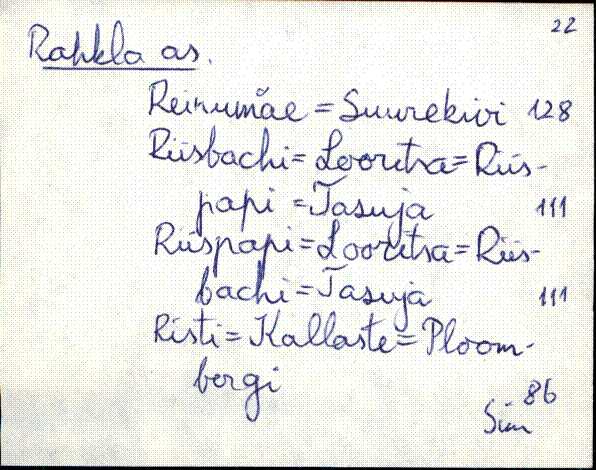 22
Rahkla as.
Reinumäe = Suurekivi 128
Riisbachi = Looritsa = Riis-
papi = Tasuja 111
Riispapi = Looritsa = Riis-
bachi = Tasuja 111
Risti = Kallaste = Ploom-
bergi
86
Sim